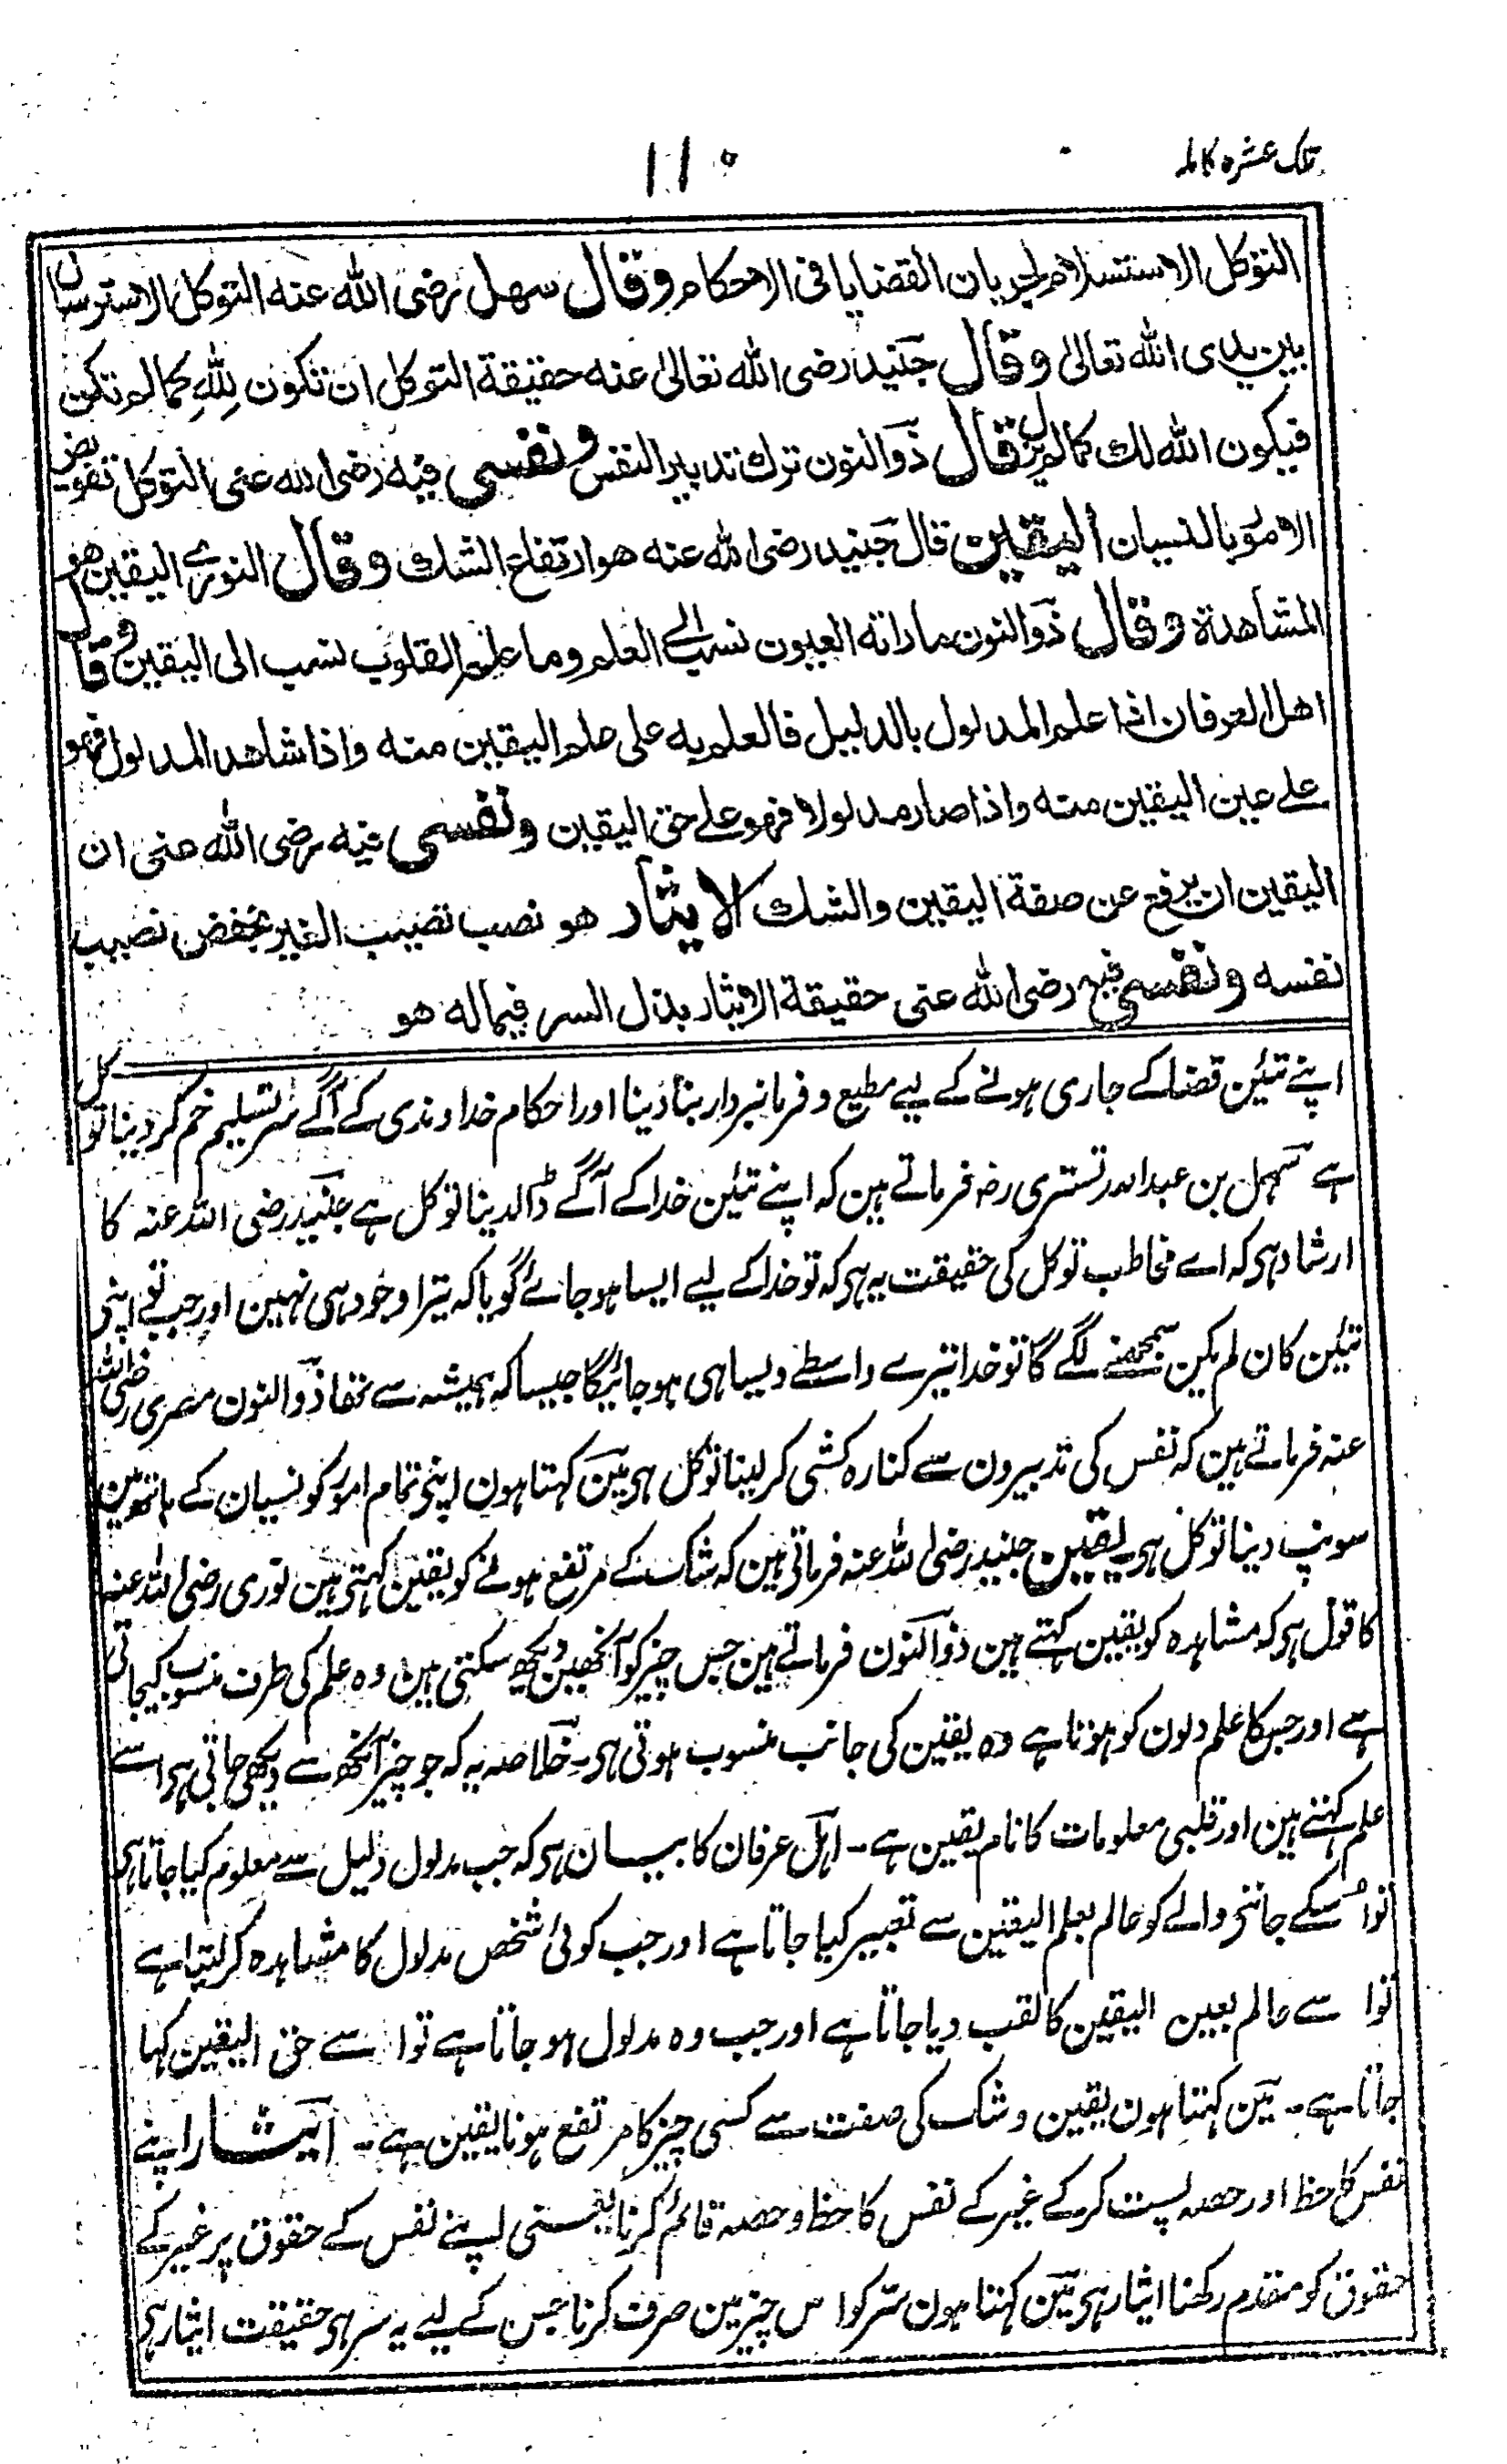 تلک عشرہ کاملہ
۱۱۰
التوکل الاستسلام لجریان القضایا فی الاحکام وقال سهل رضی الله عنه التوکل الاسترسال
بین یدی الله تعالیٰ وقال جنید رضی الله تعالیٰ عنه حقیقة التوکل ان تکون لِلّٰہِ کما لم تکن
فیکون الله لك کما لم یزل قال ذوالنون ترك تدبیر النفس ونفسی فیه رضی الله عنی التوکل تفویض
الامور بالنسیان الیقین قال جنید رضی الله عنه هو ارتفاع الشك وقال النوری الیقین هو
المشاهدة وقال ذوالنون ما راته العیون نسب الے العلم وما علم القلوب نسب الی الیقین وقال
اهل العرفان اذا علم المدلول بالدلیل فالعلم به علی علم الیقین منه واذا شاهد المدلول فهو
علے عین الیقین منه واذا صار مدلولا فهو علے حق الیقین ونفسی فیه رضی الله عنی ان
الیقین ان یرفع عن صفة الیقین والشك الایثار هو نصب نصیب الغیر بخفض نصیب
نفسه ونفسی فیه رضی الله عنی حقیقة الایثار بذل السر فیما له هو
اپنے تئین قضا کے جاری ہونے کے لیے مطیع و فرمانبردار بنا دینا اور احکام خداوندی کے آگے سر تسلیم خم کر دینا توکل
ہے سہل بن عبداللہ تستری رضہ فرماتے ہین کہ اپنے تئین خدا کے آگے ڈالدینا توکل ہے جنید رضی اللہ عنہ کا
ارشاد ہی کہ اے مخاطب توکل کی حقیقت یہ ہی کہ تو خدا کے لیے ایسا ہو جائے گویا کہ تیرا وجود ہی نہین اور جب تو اپنی
تئین کان لم یکن سمجھنے لگے گا تو خدا تیرے واسطے ویسا ہی ہو جائیگا جیسا کہ ہمیشہ سے تھا ذوالنون مصری رضی اللہ
عنہ فرماتے ہین کہ نفس کی تدبیرون سے کنارہ کشی کر لینا توکل ہی مین کہتا ہون اپنی تمام امور کو نسیان کے ہاتھ مین
سونپ دینا توکل ہی۔ یقین جنید رضی اللہ عنہ فرماتی ہین کہ شاک کے مرتفع ہونے کو یقین کہتی ہین نوری رضی اللہ عنہ
کا قول ہی کہ مشاہدہ کو یقین کہتے ہین ذوالنون فرماتے ہین جس چیز کو آنکھین دیکھ سکتی ہین وہ علم کی طرف منسوب کیجاتی
ہے اور جس کا علم دلون کو ہوتا ہے وہ یقین کی جانب منسوب ہوتی ہی۔ خلاصہ یہ کہ جو چیز آنکھ سے دیکھی جاتی ہی اسے
علم کہتے ہین اور قلبی معلومات کا نام یقین ہے۔ اہل عرفان کا بیان ہی کہ جب مدلول دلیل سے معلوم کیا جاتا ہی
تو اُسکے جاننے والے کو عالم بعلم الیقین سے تعبیر کیا جاتا ہے اور جب کوئی شخص مدلول کا مشاہدہ کر لیتا ہے
تو اسے عالم بعین الیقین کا لقب دیا جاتا ہے اور جب وہ مدلول ہو جاتا ہے تو اسے حق الیقین کہا
جاتا ہے۔ مین کہتا ہون یقین و شک کی صفت سے کسی چیز کا مرتفع ہونا یقین ہے۔ ایثار اپنے
نفس کا حظ اور حصہ پست کر کے غیر کے نفس کا حظ و حصہ قائم کرنا یعنی اپنے نفس کے حقوق پر غیر کے
حقوق کو مقدم رکھنا ایثار ہی مین کہتا ہون سر کو اس چیز مین صرف کرنا جس کے لیے یہ سر ہی حقیقت ایثار ہی